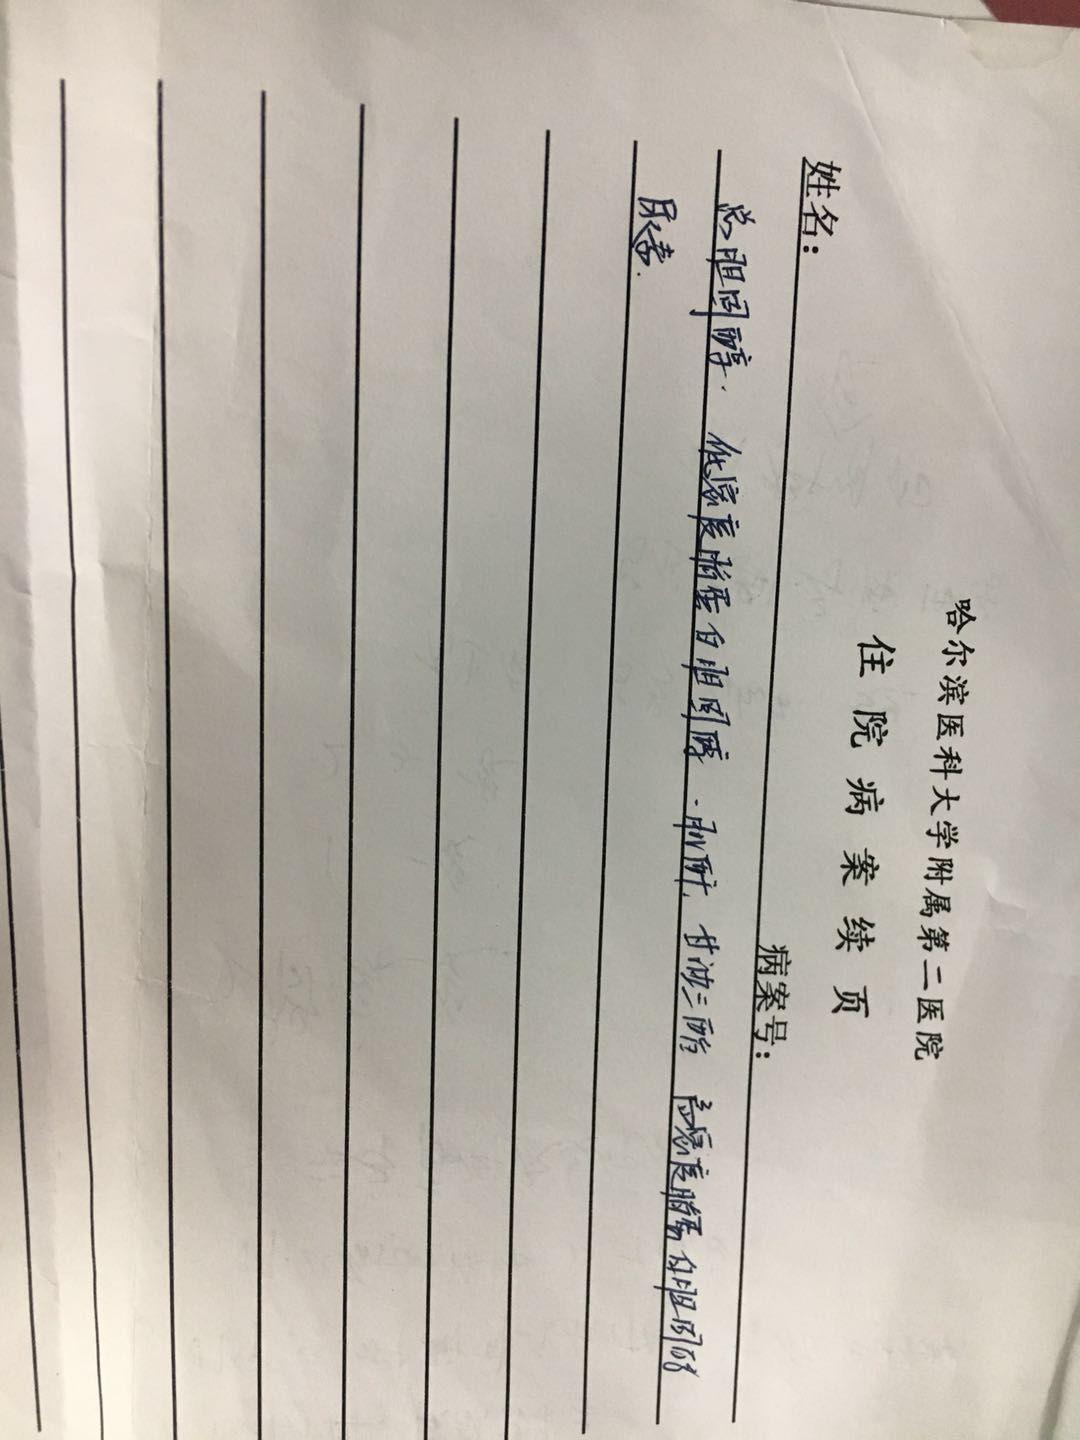 哈尔滨医科大学附属第二医院
住院病案续页
姓名： 病案号：
总胆固醇. 低密度脂蛋白胆固醇. 肌酐. 甘油三酯 高密度脂蛋白胆固醇
尿素.